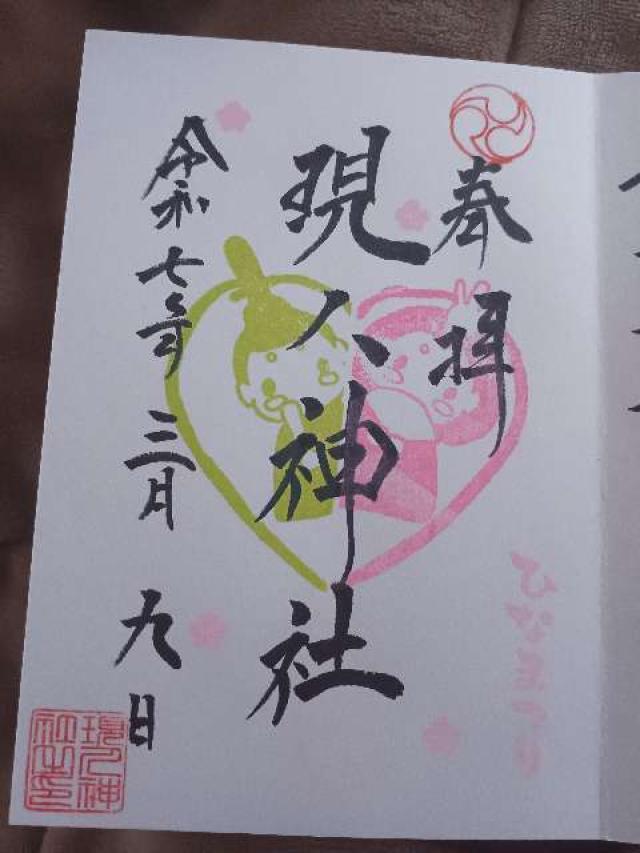 奉拝
ひなまつり
現人神社
令和七年三月九日
現人神
社之印